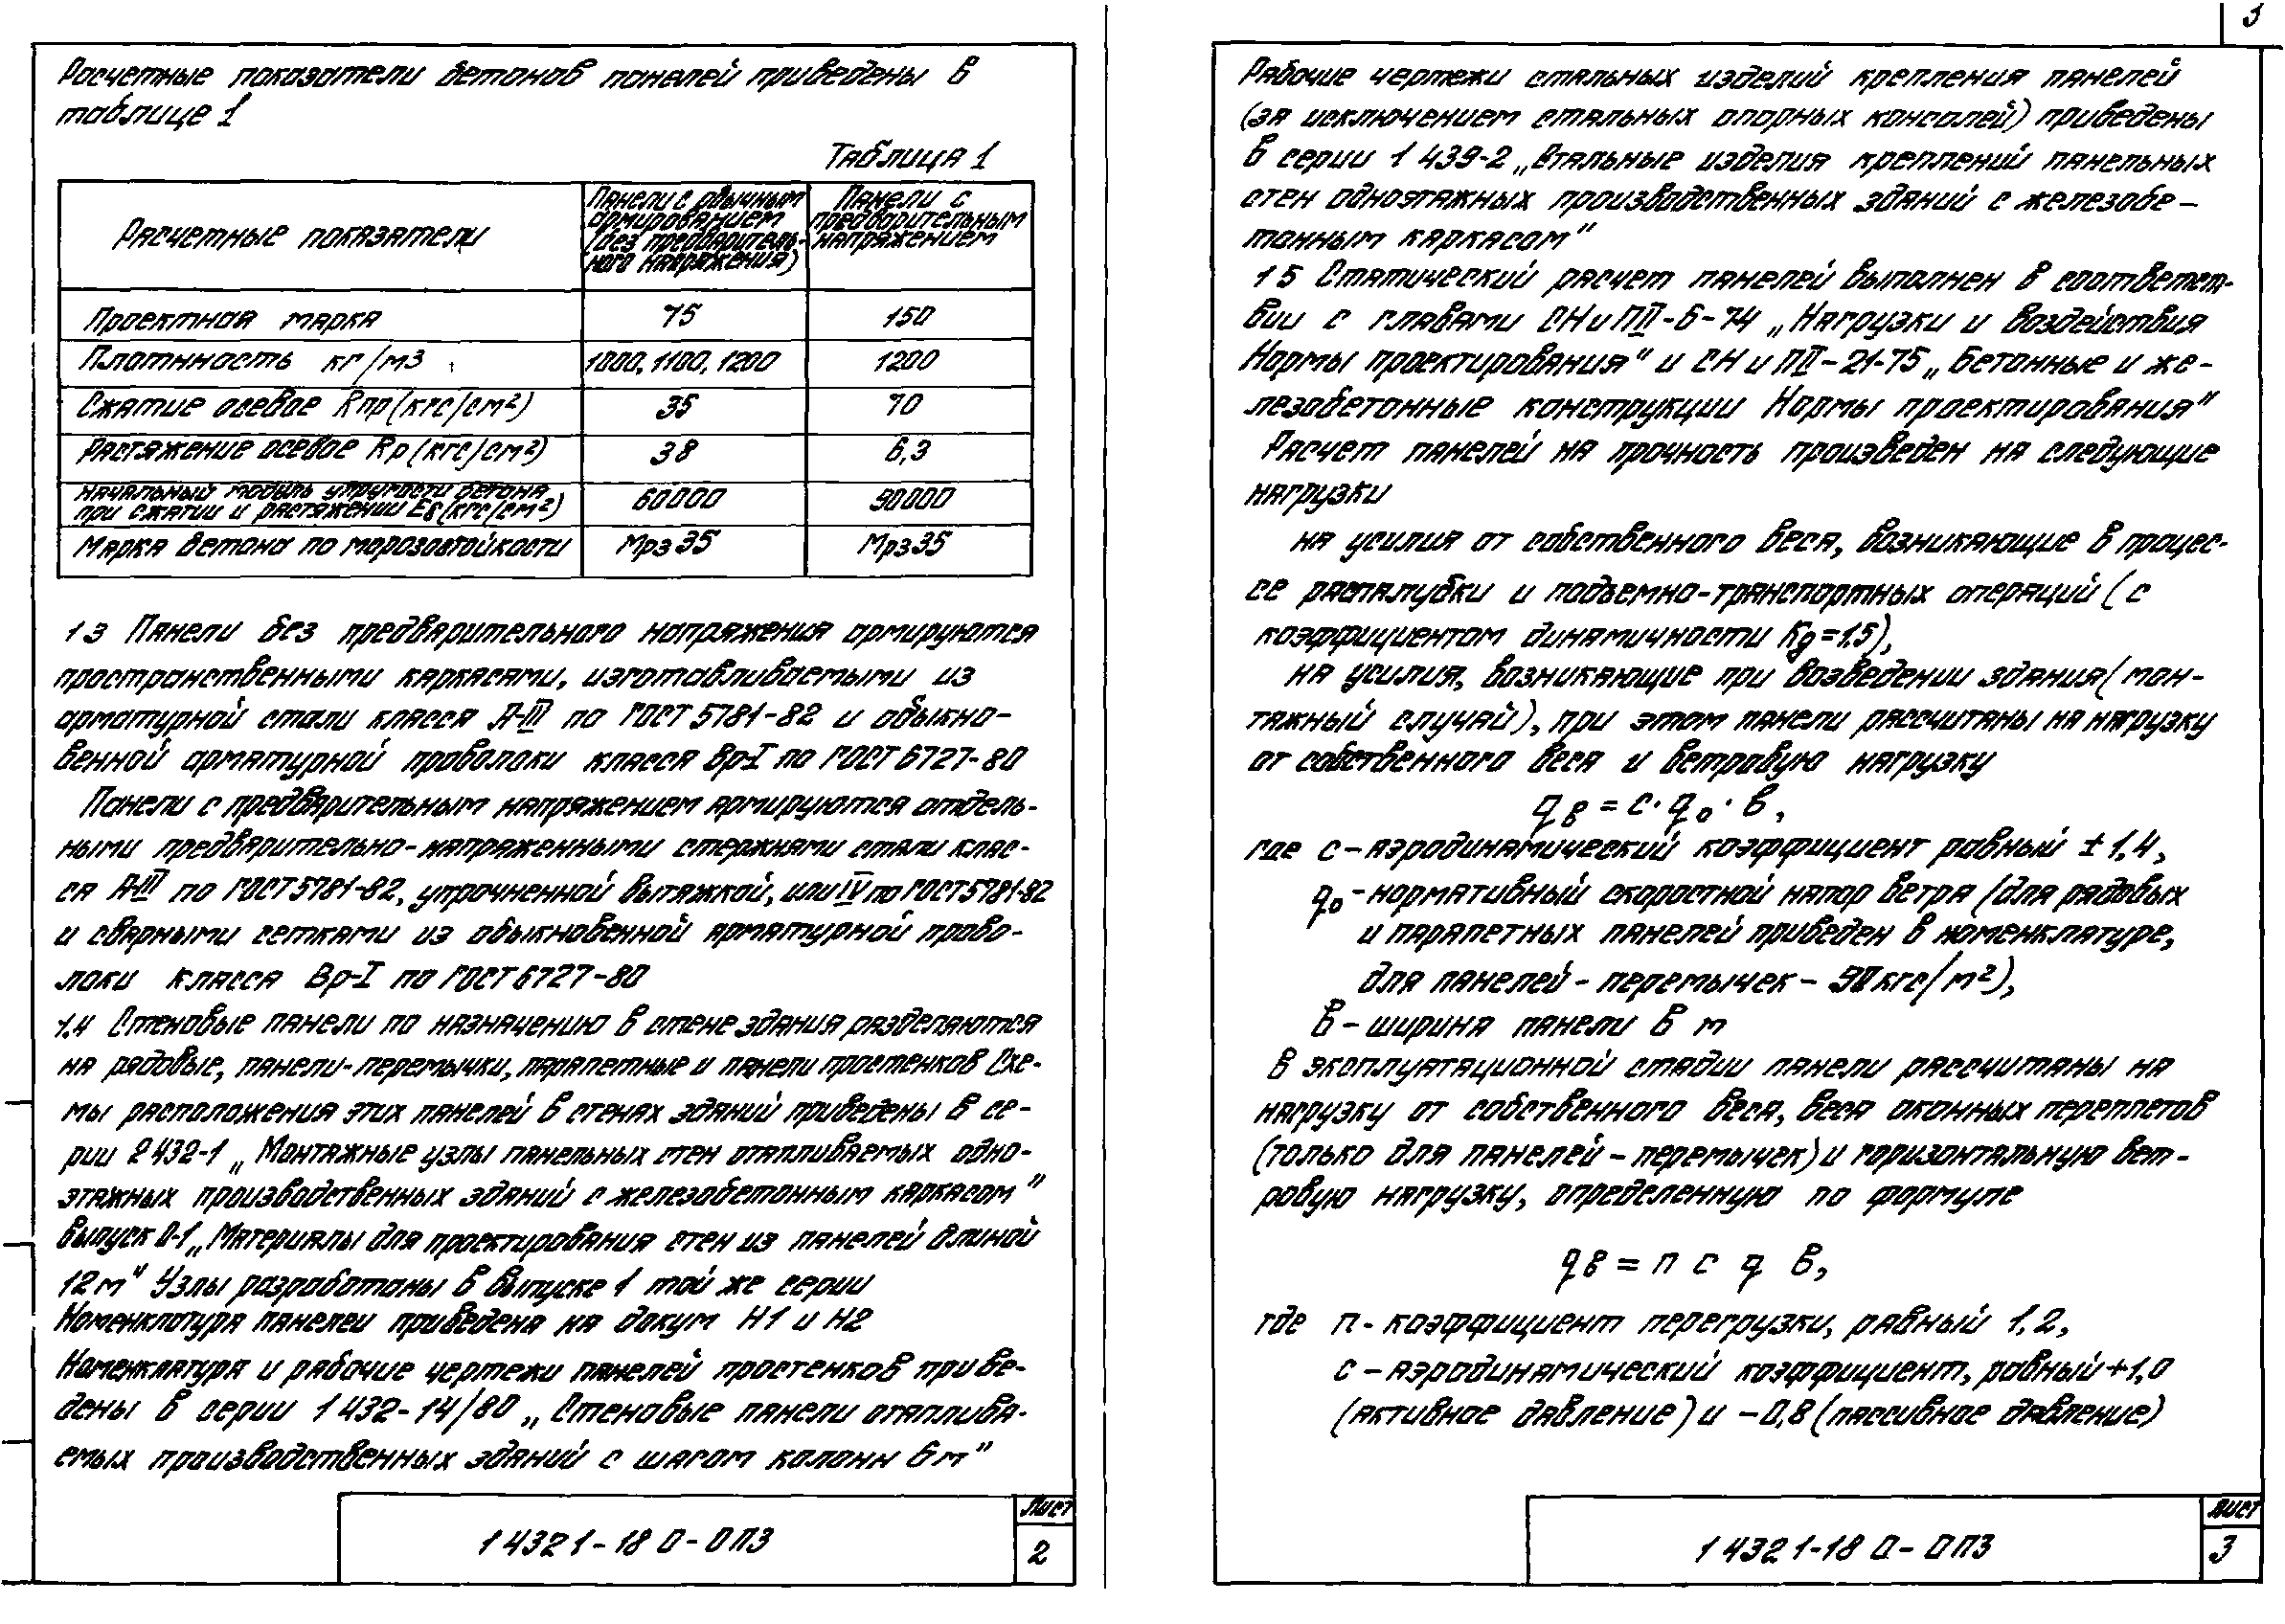 Расчетные показатели бетонов панелей приведены в
таблице 1
Таблица 1
Расчетные показатели
Панели с обычным
армированием
(без предваритель-
ного напряжения)
Панели с
предварительным
напряжением
Проектная марка 75 150
Плотнность кг/м3 1000, 1100, 1200 1200
Сжатие осевое Rпр (кгс/см²) 35 70
Растяжение осевое Rр (кгс/см²) 38 6,3
Начальный модуль упругости бетона
при сжатии и растяжении Eб (кгс/см²) 60000 90000
Марка бетона по морозостойкости Мрз 35 Мрз 35
1 3 Панели без предварительного напряжения армируются
пространственными каркасами, изготавливаемыми из
арматурной стали класса А-III по ГОСТ 5781-82 и обыкно-
венной арматурной проволоки класса Вр-I по ГОСТ 6727-80
Панели с предварительным напряжением армируются отдель-
ными предварительно-напряженными стержнями стали клас-
са А-III по ГОСТ 5781-82, упрочненной вытяжкой, или IV по ГОСТ 5781-82
и сварными сетками из обыкновенной арматурной прово-
локи класса Вр-I по ГОСТ 6727-80
1.4 Стеновые панели по назначению в стене здания разделяются
на рядовые, панели-перемычки, парапетные и панели простенков Схе-
мы расположения этих панелей в стенах зданий приведены в се-
рии 2 432-1 „Монтажные узлы панельных стен отапливаемых одно-
этажных производственных зданий с железобетонным каркасом"
выпуск 0-1 „Материалы для проектирования стен из панелей длиной
12м" Узлы разработаны в выпуске 1 той же серии
Номенклатура панелеи приведена на докум Н1 и Н2
Номенклатура и рабочие чертежи панелей простенков приве-
дены в серии 1 432-14/80 „Стеновые панели отаплива-
емых производственных зданий с шагом колонн 6м"
1 432 1-18 0-0ПЗ
Лист
2
3
Рабочие чертежи стальных изделий крепления панелей
(за исключением стальных опорных консолей) приведены
в серии 1 439-2 „Стальные изделия креплений панельных
стен одноэтажных производственных зданий с железобе-
тонным каркасом"
1 5 Статический расчет панелей выполнен в соответст-
вии с главами СНиП II-6-74 „Нагрузки и воздействия
Нормы проектирования" и СНиП II-21-75 „Бетонные и же-
лезобетонные конструкции Нормы проектирования"
Расчет панелей на прочность произведен на следующие
нагрузки
на усилия от собственного веса, возникающие в процес-
се распалубки и подъемно-транспортных операций (с
коэффициентом динамичности Kд=1.5),
на усилия, возникающие при возведении здания (мон-
тажный случай), при этом панели рассчитаны на нагрузку
от собственного веса и ветровую нагрузку
qв = с · q₀ · в,
где с – аэродинамический коэффициент равный ± 1,4,
q₀ - нормативный скоростной напор ветра (для рядовых
и парапетных панелей приведен в номенклатуре,
для панелей - перемычек – 90 кгс/м²),
в – ширина панели в м
В эксплуатационной стадии панели рассчитаны на
нагрузку от собственного веса, веса оконных переплетов
(только для панелей – перемычек) и горизонтальную вет-
ровую нагрузку, определенную по формуле
qв = п с q в,
где п - коэффициент перегрузки, равный 1,2,
с – аэродинамический коэффициент, равный +1,0
(активное давление) и –0,8 (пассивное давление)
1 432 1-18 0-0ПЗ
Лист
3